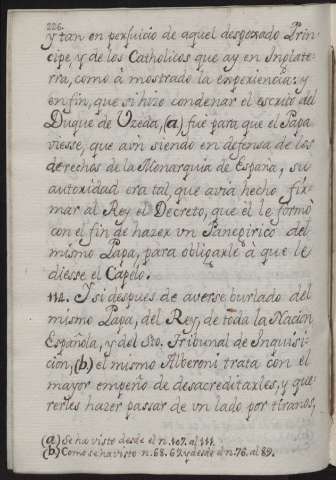 226.
y tan en perjuicio de aquel desgrazado Prin-
cipe, y de los Catholicos que ay en Inglate-
rra, como à mostrado la experiencia: y
en fin, que si hizo condenar el escrito del
Duque de Uzeda, (a) fue para que el Papa
viesse, que aun siendo en defensa de los
derechos de la Monarquia de España, su
autoridad era tal, que avia hecho fir-
mar al Rey el Decreto, que èl le formò
con el fin de hazer vn Panepirico del
mismo Papa, para obligarle à que le
diesse el Capelo.
112. Y si despues de averse burlado del
mismo Papa, del Rey, de toda la Nacion
Española, y del Sto. Tribunal de Inquisi-
cion, (b) el mismo Alberoni trata con el
mayor empeño de desacreditarles, y que-
rerles hazer passar de vn lado por tiranos,
(a) Se ha visto desde el n. 107. al 111.
(b) Como se ha visto n. 68. 69. y desde el n. 76. al 89.